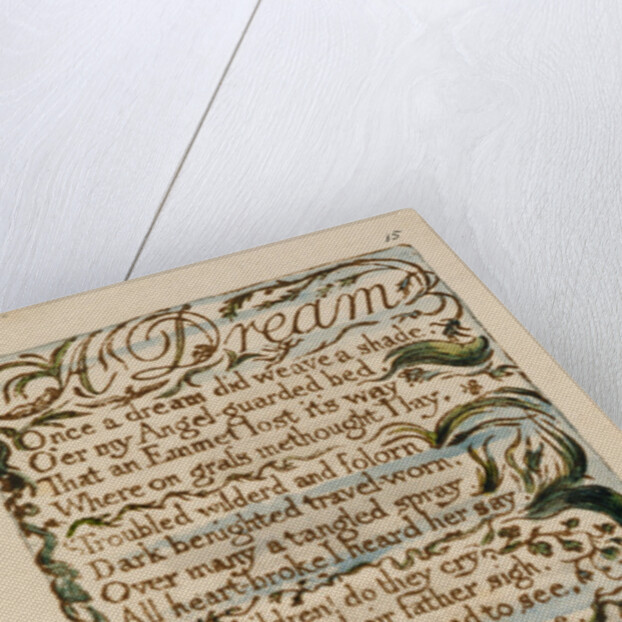 15
A Dream
Once a dream did weave a shade,
O'er my Angel-guarded bed,
That an Emmet lost it's way
Where on grass methought I lay.
Troubled wilderd and folorn
Dark benighted travel-worn.
Over many a tangled spray
All heart-broke I heard her say.
children! do they cry
father sigh.
to see,